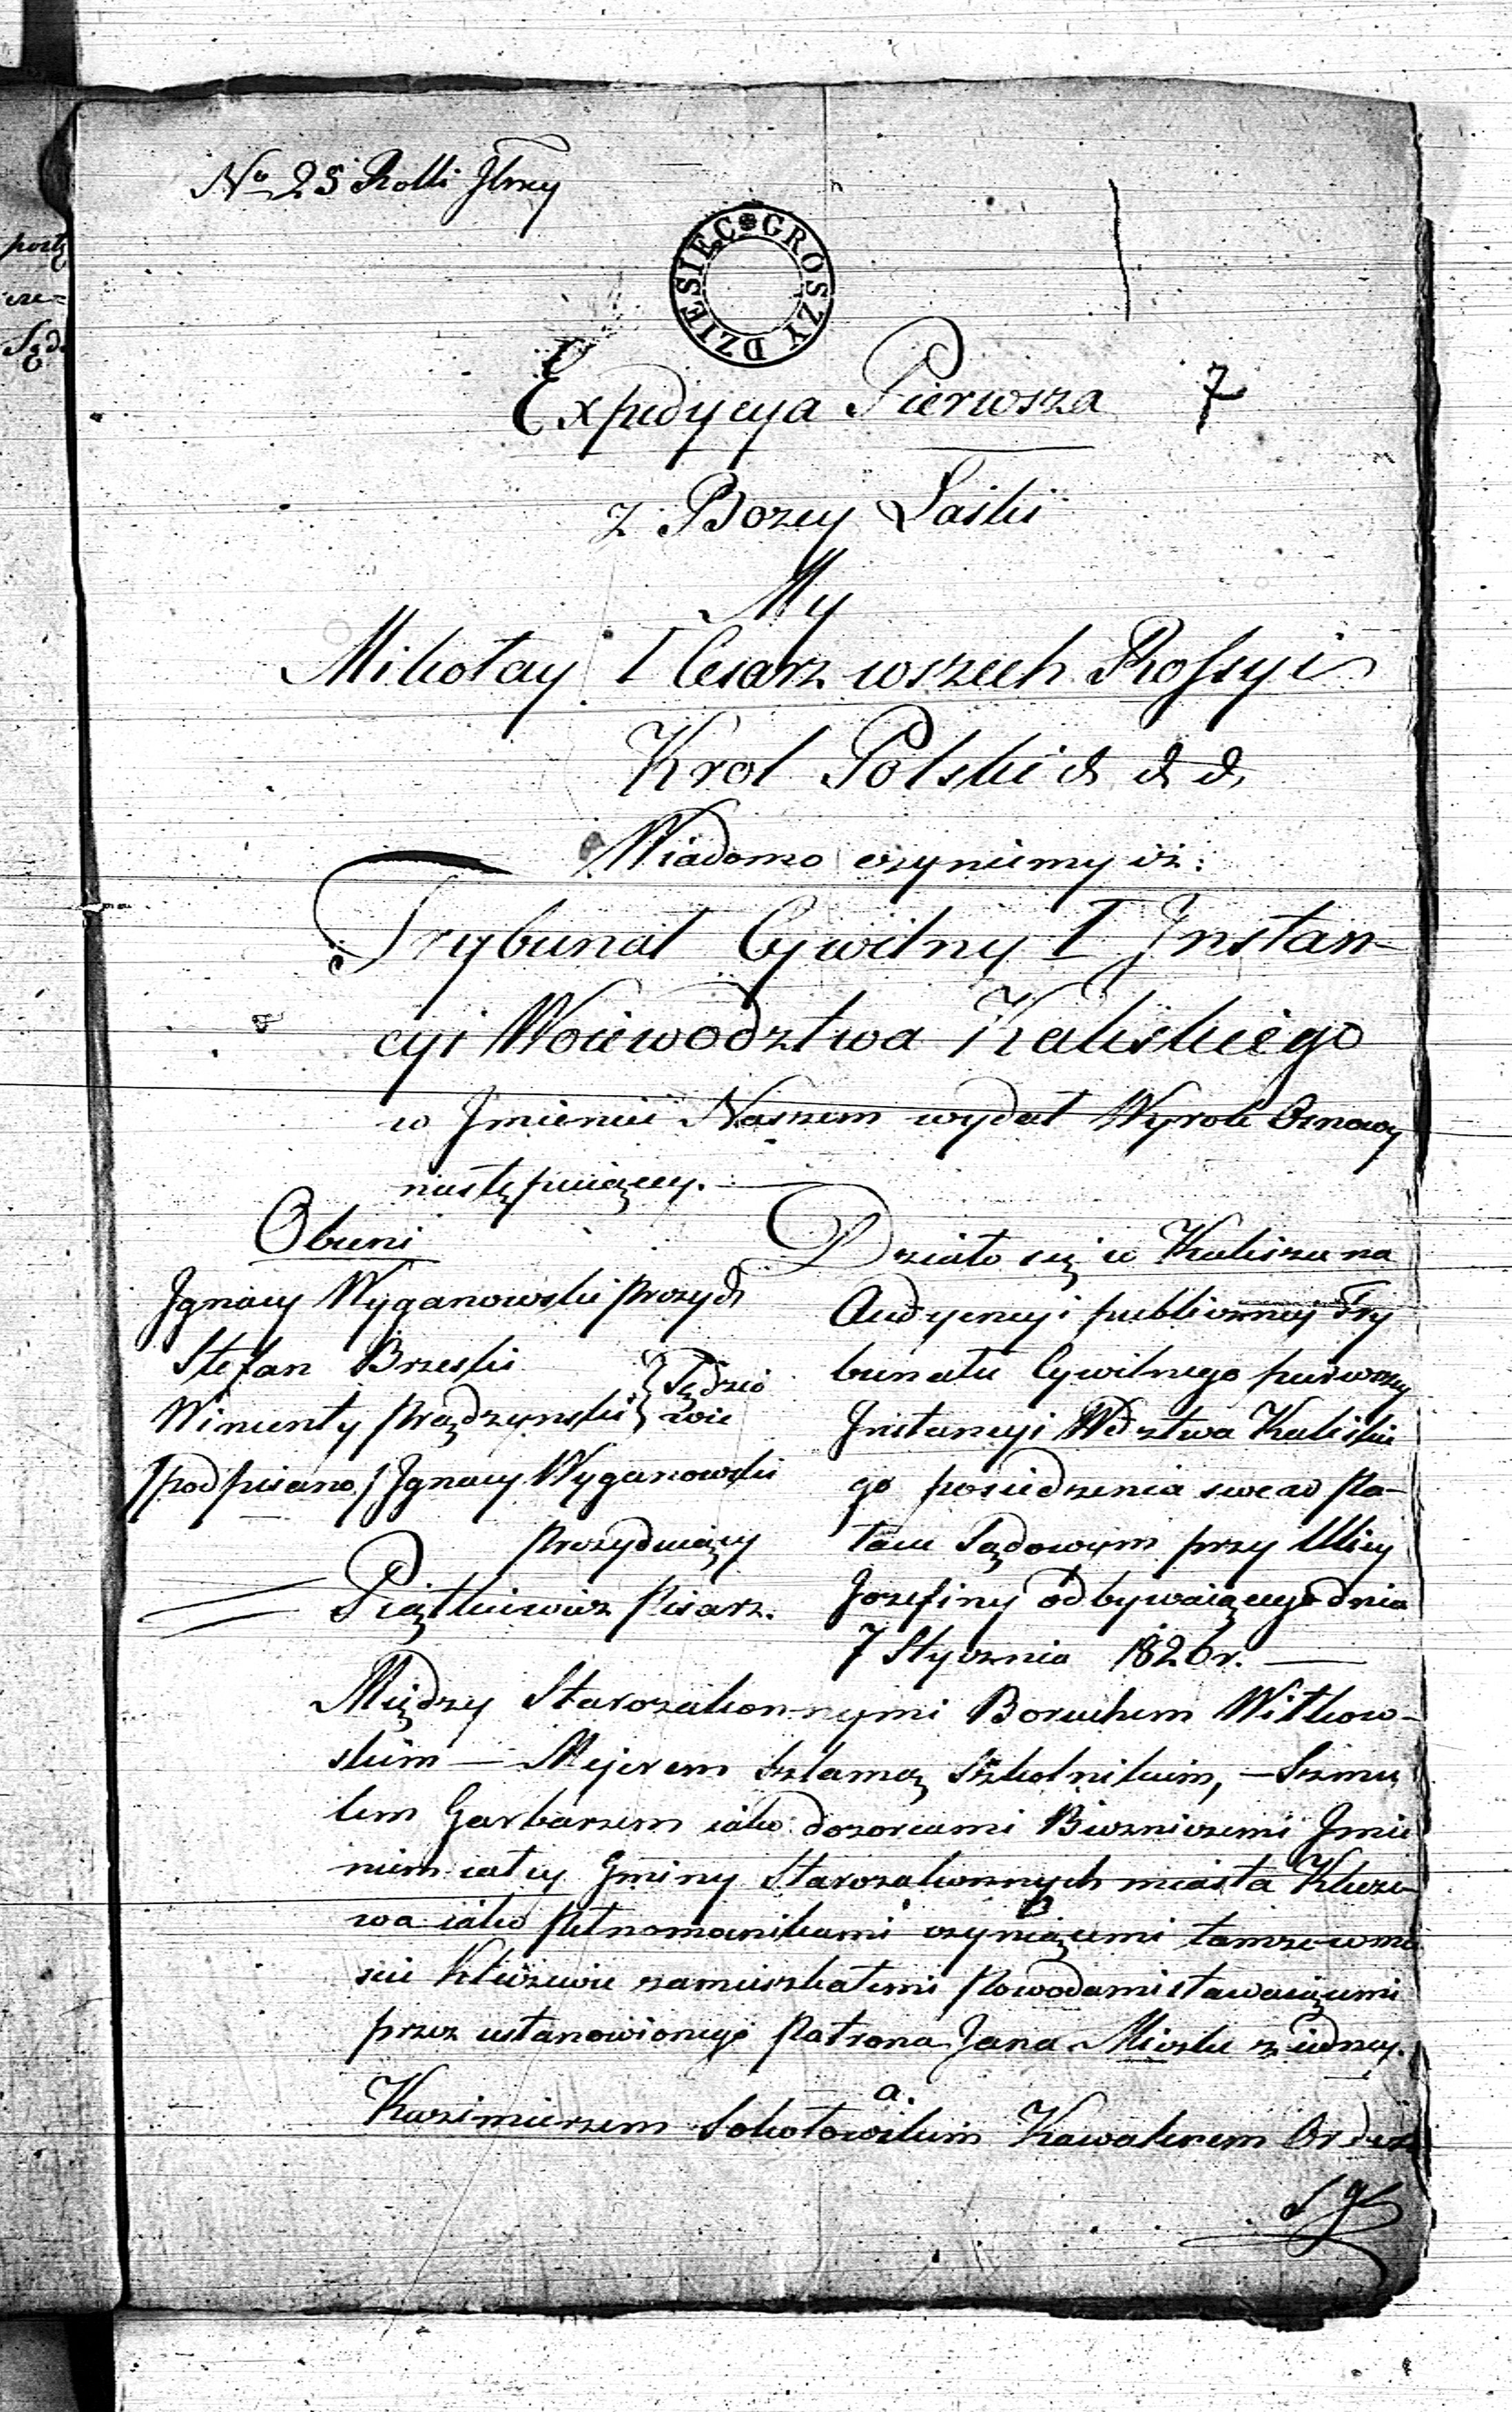 No 25 Rolli
DZIESIĘĆ GROSZY
7
Expedycya Pierwsza
z Bozey Łaski
My
Mikołay I Cesarz wszech Rossyi
Krol Polski & & &
Wiadomo czyniemy iż:
Trybunał Cywilny I Instan-
cyi Woiewodztwa Kaliskiego
w Jmieniu Naszem wydał Wyrok Osnowy
następuiącey.
Obecni
Jgnacy Wyganowski Prezyd
Stefan Brzeski
Sędzio
Wincenty Prądzynski wie
/podpisano/ Jgnacy Wyganowski
Prezyduiący
Piątkiewicz Pisarz.
Działo się w Kaliszu na
Audyencyi publiczney Try
bunału Cywilnego pierwszy
Jnstancyi Wdztwa Kaliskie
go posiedzenia swe w Pa-
łacu Sądowym przy Ulicy
Jozefiny odbywaiącego dnia
7 Stycznia 1826 r.
Między Starozakonnymi Boruchem Witkow-
skim — Mejerem Szlamą Szkolnikiem, — Szmu
lem Garbarzem iako dozorcami Bożniczemi Jmie
niem całey Gminy Starozakonnych miasta Klecze-
wa iako Pełnomocnikami czyniącemi tamże w mie
scie Kleczewie zamieszkałemi Powodami stawaiącemi
przez ustanowionego Patrona Jana z iedney.
a.
Kazimierzem Sokołowskim Kawalerem Orderu